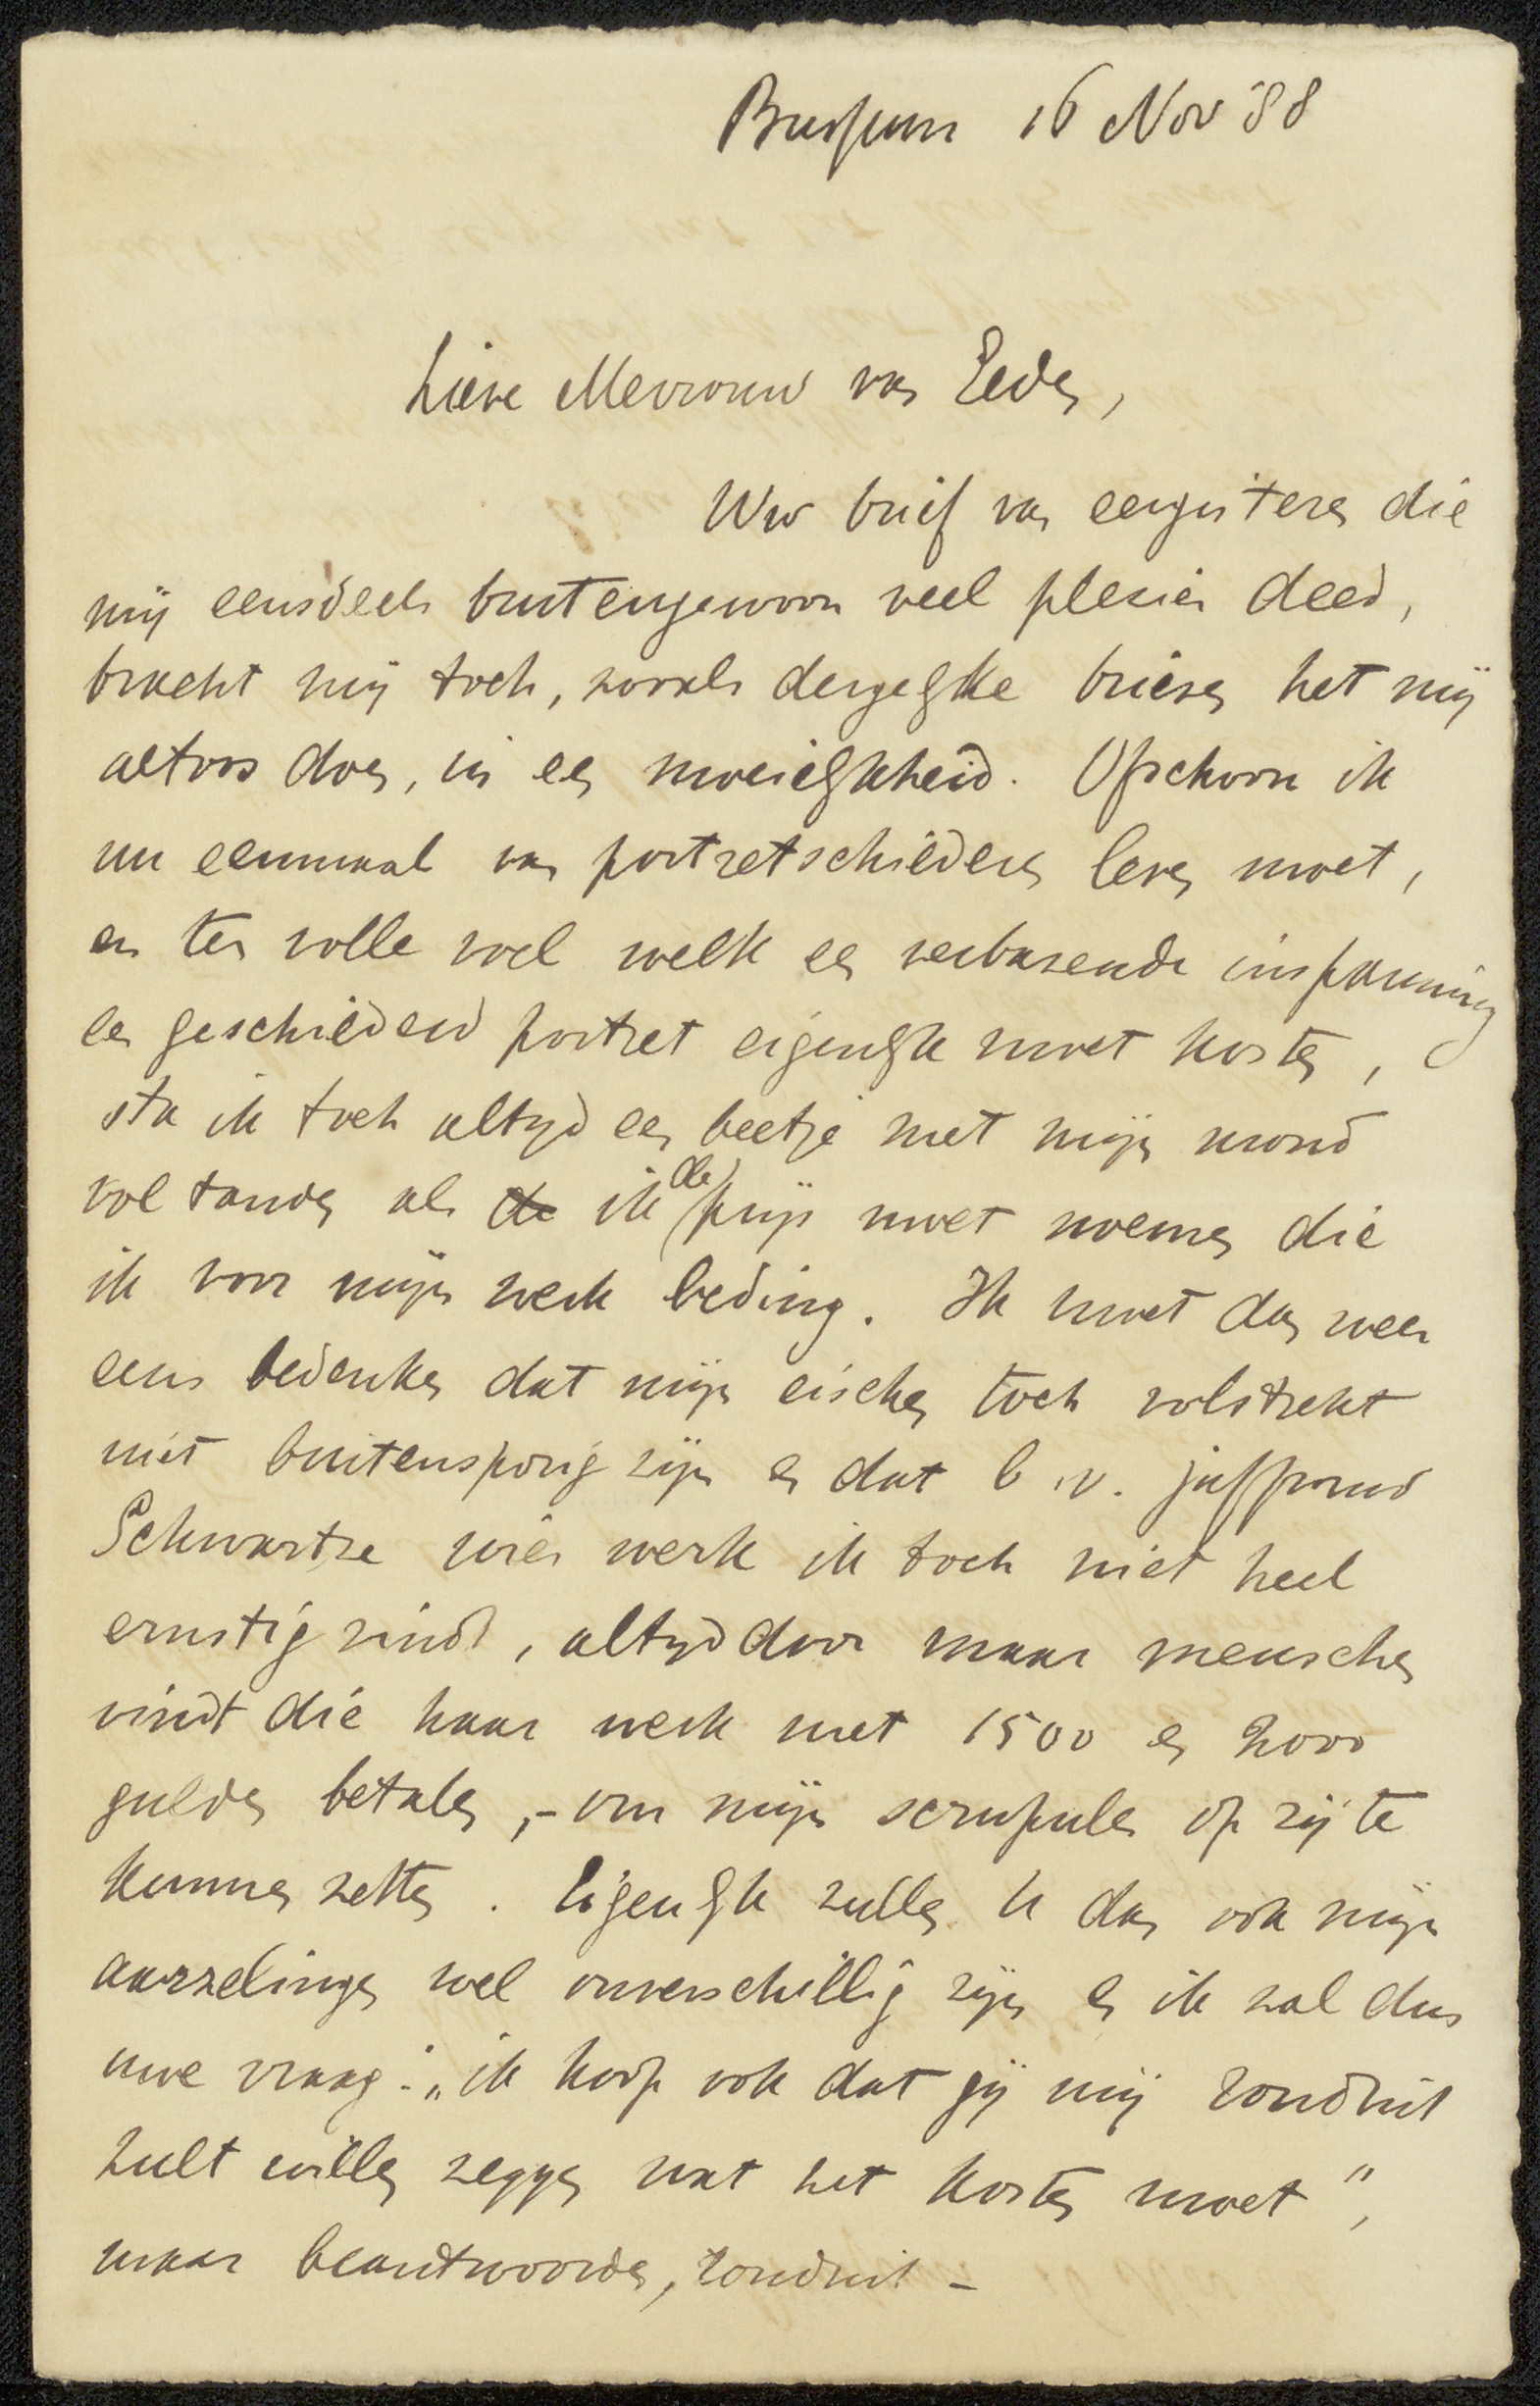 Bussum 16 Nov '88
Lieve Mevrouw van Eeden,
Uw brief van eergisteren die
mij eensdeels buitengewoon veel plezier deed,
bracht mij toch, zooals dergelijke brieven het mij
altoos doen, in een moeielijkheid. Ofschoon ik
nu eenmaal van portretschilderen leven moet,
en ten volle voel welk een verbazende inspanning
een geschilderd portret eigenlijk moet kosten,
sta ik toch altijd een beetje met mijn mond
vol tanden als de ik de prijs moet noemen die
ik voor mijn werk beding. Ik moet dan weer
eens bedenken dat mijn eischen toch volstrekt
niet buitensporig zijn en dat b.v. juffrouw
Schwartze wier werk ik toch niet heel
ernstig vind, altijd door maar menschen
vindt die haar werk met 1500 en 2000
gulden betalen, - om mijn scrupules op zij te
kunnen zetten. Eigenlijk zullen U dan ook mijn
aarzelingen wel onverschillig zijn en ik zal dus
uwe vraag: „ik hoop ook dat gij mij ronduit
zult willen zeggen wat het kosten moet",
maar beantwoorden, ronduit -